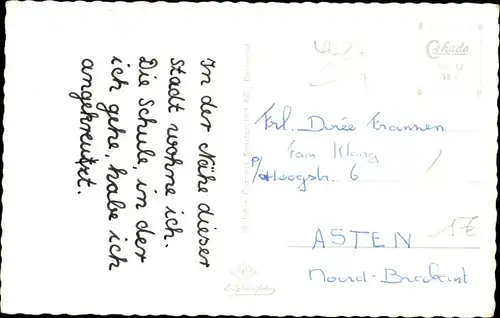 In der Nähe dieser
Stadt wohne ich.
Die Schule, in der
ich gehe, habe ich
angekreutzt.
Cekade
Frl. Dorée Franssen
Fam Klaus
p/a Hoogstr. 6
ASTEN
Noord-Brabant
5€